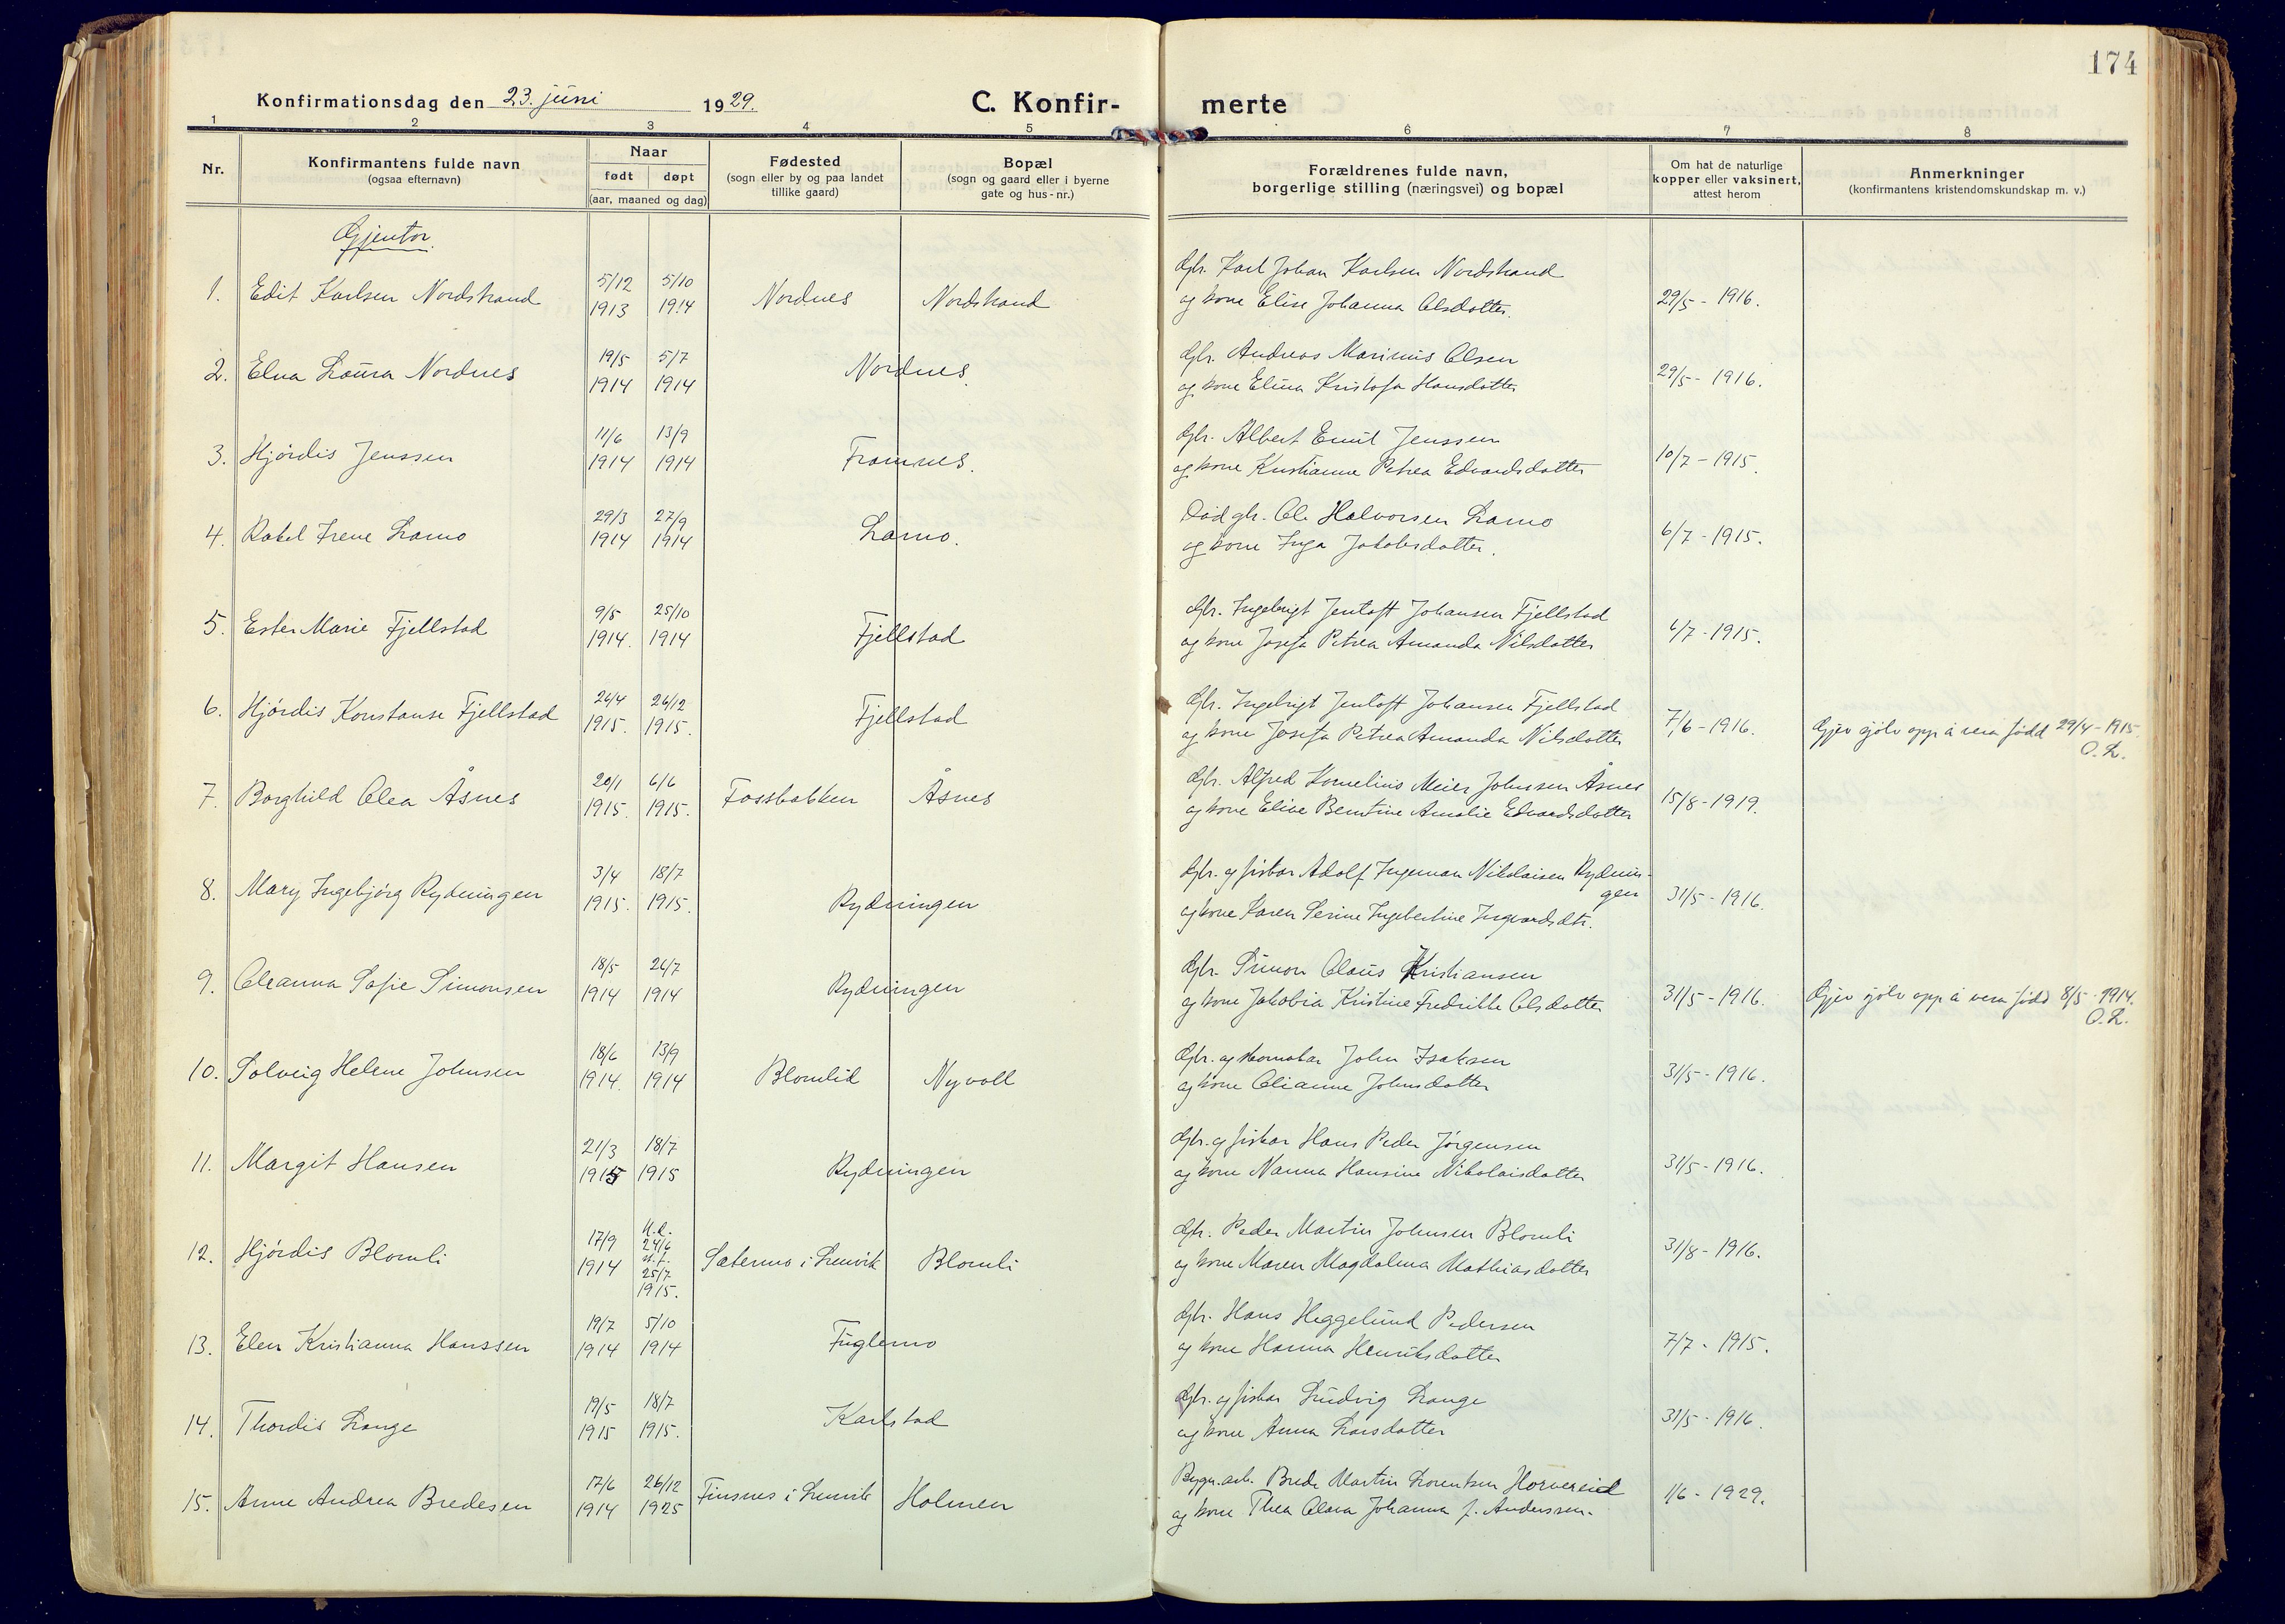 174
Konfirmationsdag den 23. juni 1929.
C. Konfir- merte
1 2 3 4 5 6 7 8
Nr.
Konfirmantens fulde navn
(ogsaa efternavn)
Naar
født døpt
(aar, maaned og dag)
Fødested
(sogn eller by og paa landet
tillike gaard)
Bopæl
(sogn og gaard eller i byerne
gate og hus-nr.)
Forældrenes fulde navn,
borgerlige stilling (næringsvei) og bopæl
Om hat de naturlige
kopper eller vaksinert,
attest herom
Anmerkninger
(konfirmantens kristendomskundskap m. v.)
Gjentor.
1. Edit Karlsen Nordstrand 5/12 1913 5/10 1914 Nordnes Nordstrand
Gbr. Karl Johan Karlsen Nordstrand
og kone Elise Johanna Olsdotter.
29/5 - 1916.
2. Elna Laura Nordnes 19/5 1914 5/7 1914 Nordnes.
Gbr. Andreas Marinus Olsen
og kone Elina Kristofa Hansdotter
29/5 - 1916.
3. Hjördis Jenssen 11/6 1914 13/9 1914 Framnes.
Gbr. Albert Emil Jenssen
og kone Kristianne Petrea Edvardsdotter
10/7 - 1915.
4. Rakel Irene Lamo 29/3 1914 27/9 1914 Lamo.
Död gbr. Ole Halvorsen Lamo
og kone Inga Jakobsdotter.
6/7 - 1915.
5. Ester Marie Fjellstad 9/5 1914. 25/10 1914 Fjellstad
Gbr. Ingebrigt Jentoft Johansen Fjellstad
og kone Josefa Petrea Amanda Nilsdotter
6/7 - 1915.
6. Hjördis Konstanse Fjellstad 26/4 1915. 26/12 1915. Fjellstad
Gbr. Ingebrigt Jentoft Johansen Fjellstad
og kone Josefa Petrea Amanda Nilsdotter
7/6 - 1916.
Gjev sjölv opp å vera född 29/4 - 1915.
O. L.
7. Borghild Olea Åsnes 20/1 1915. 6/6 1915. Fossbakken Åsnes
Gbr. Alfred Kornelius Meier Johnsen Åsnes
og kone Elise Berntine Amalie Edvardsdotter
15/8 - 1919.
8. Mary Ingebjörg Rydningen 3/4 1915. 18/7 1915. Rydningen
Gbr. og fiskar Adolf Ingeman Nikolaisen Rydnin-
gen
og kone Karen Serine Ingebertine Ingvardsdtr.
31/5 - 1916.
9. Oleanna Sofie Simonsen 18/5 1914 26/7 1914 Rydningen
Gbr. Simon Olaus Kristiansen
og kone Jakobia Kristine Fredrikke Olsdotter
31/5 - 1916.
Gjev sjölv opp å vera född 8/5 - 1914.
O. L.
10. Solveig Helene Johnsen 18/6 1914. 13/9 1914 Blomlid Nyvoll
Gbr. og skomakar John Isaksen
og kone Olianne Johnsdotter
31/5 - 1916.
11. Margit Hansen 21/3 1915 18/7 1915 Rydningen
Gbr. og fiskar Hans Peder Jörgensen
og kone Nanna Hansine Nikolaisdotter
31/5 - 1916.
12. Hjördis Blomli 17/9 1914 H.d. 24/6 st.f. 25/7 1915. Sætermo i Lenvik Blomli
Gbr. Peder Martin Johnsen Blomli
og kone Maren Magdalena Mathiasdotter
31/8 - 1916.
13. Elen Kristianna Hanssen 19/7 1914 5/10 1914 Fuglemo
Gbr. Hans Heggelund Pedersen
og kone Hanna Henriksdotter
7/7 - 1915.
14. Thordis Lange 19/5 1915 18/7 1915. Karlstad
Gbr. og fiskar Ludvig Lange
og kone Anna Larsdotter
31/5 - 1916.
15. Anne Andrea Bredesen 17/6 1914 26/12 1925 Finsnes i Lenvik Holmen
Bygn.arb. Brede Martin Lorentsen Horvereid
og kone Thea Olava Johanna f. Anderssen.
1/6 - 1929.